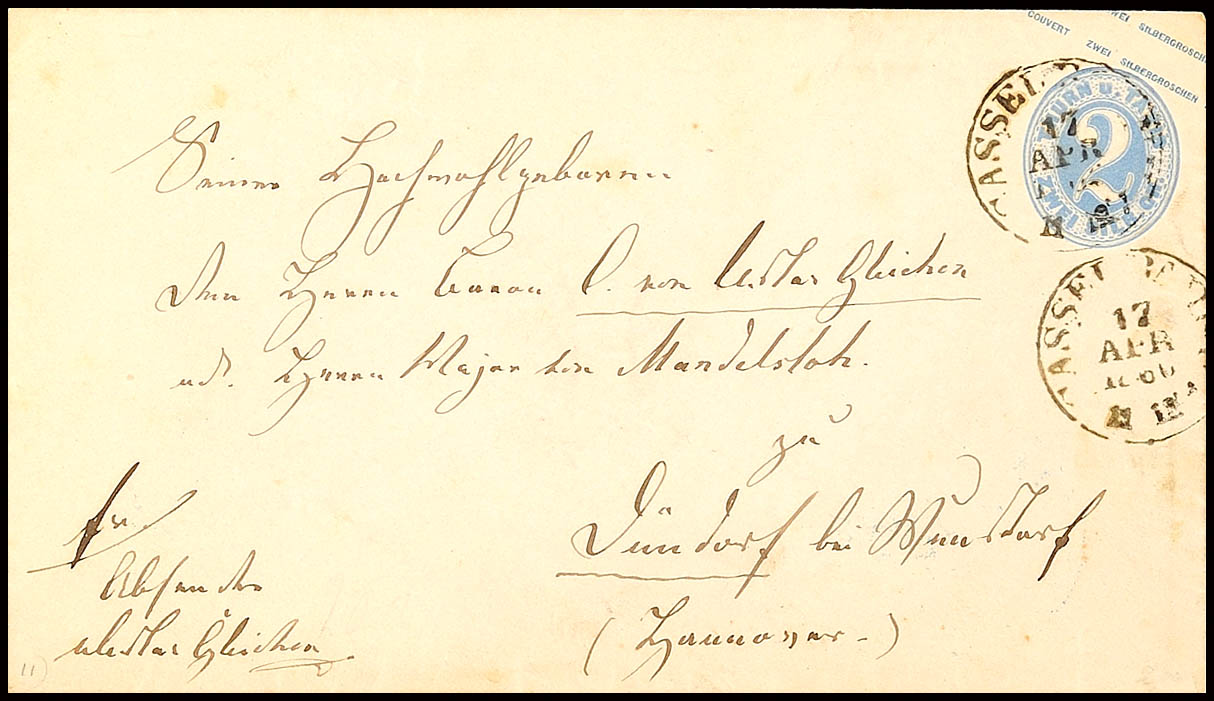 COUVERT ZWEI SILBERGROSCHEN
ZWEI SILBERGROSCHEN
THURN U. TA
2
CASSEL
17
APR
CASSEL
17
APR
Seiner Hochwohlgeboren
dem Herrn Baron C. von Uslar Gleichen
adr. Herrn Major von Mandelsloh.
zu
Dündorf bei Wunstorf
(Hannover-)
fr.
Absender
Uslar Gleichen
11)